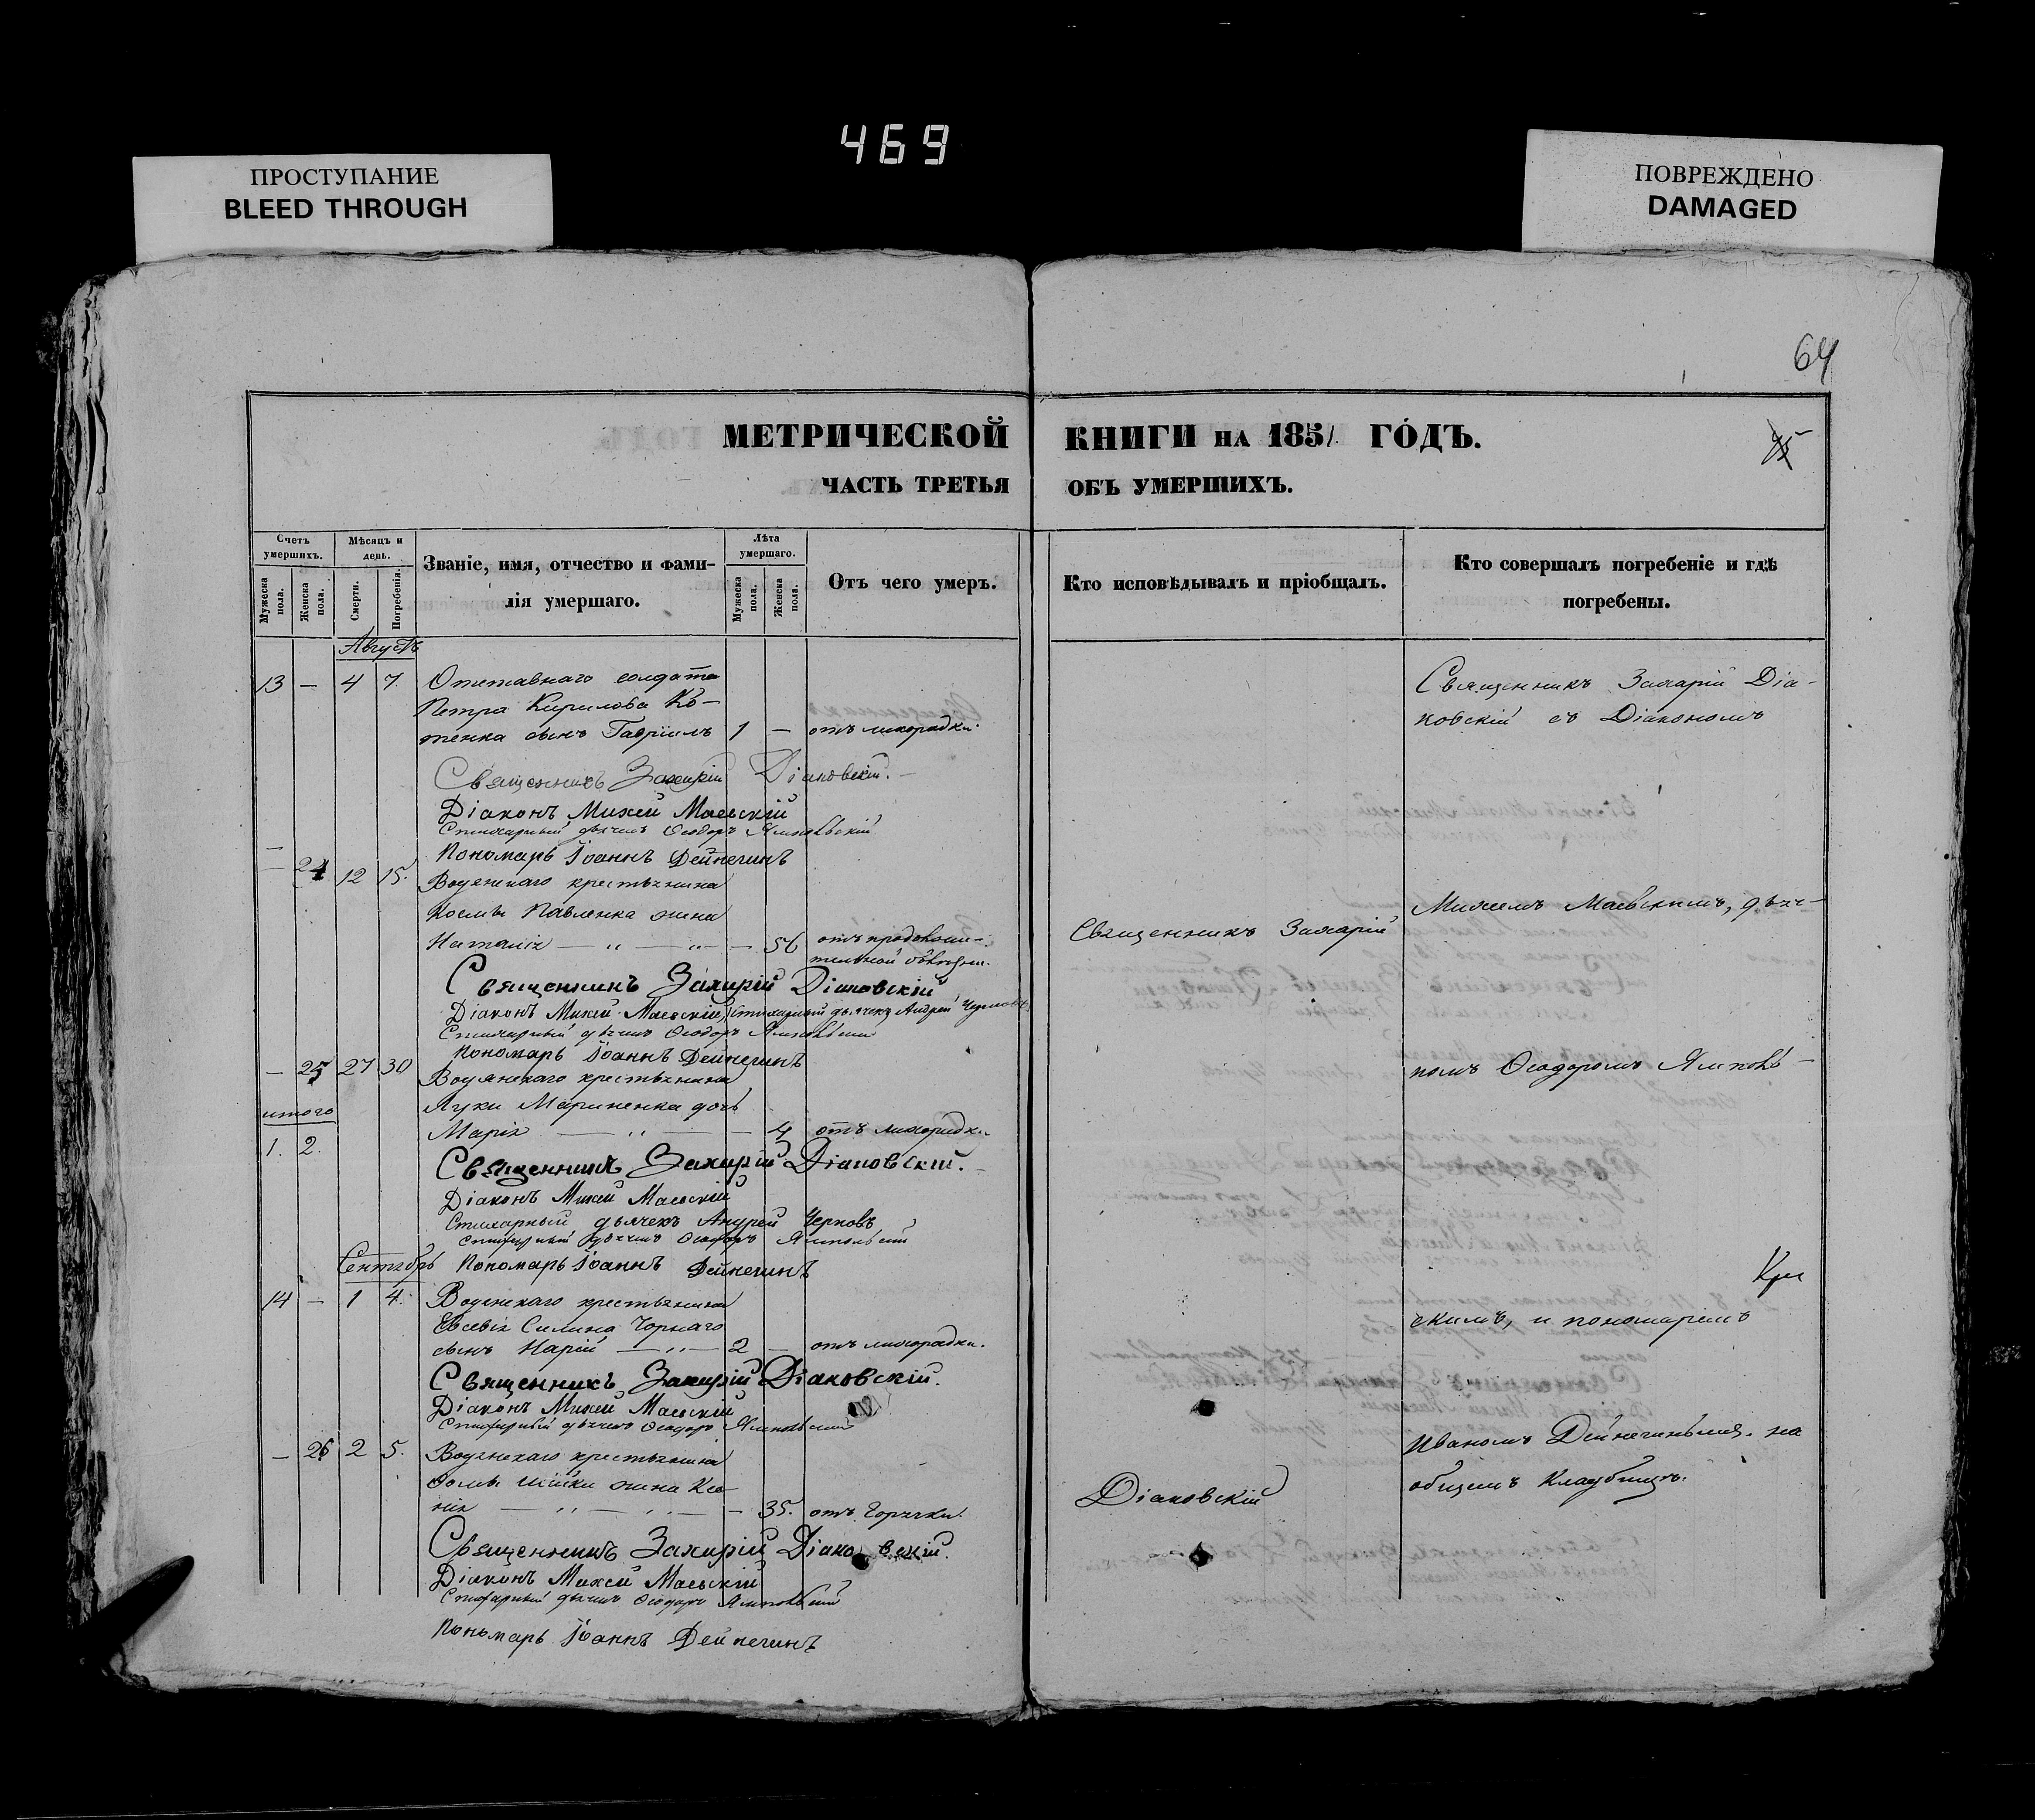 469
ПРОСТУПАНИЕ
BLEED THROUGH
ПОВРЕЖДЕНО
DAMAGED
64
МЕТРИЧЕСКОЙ КНИГИ НА 1851 ГОДЪ.
ЧАСТЬ ТРЕТЬЯ ОБЪ УМЕРШИХЪ.
Счетъ умершихъ.
Мужеска пола.
Женска пола.
Мѣсяцъ и день.
Смерти.
Погребенія.
Званіе, имя, отчество и фами-
лія умершаго.
Лѣта умершаго.
Мужеска пола.
Женска пола.
Отъ чего умеръ.
Кто исповѣдывалъ и пріобщалъ.
Кто совершалъ погребеніе и гдѣ
погребены.
Августъ
13 — 4 7. Отставнаго солдата
Петра Кирилова Ко-
тенка сынъ Гавріилъ 1 — отъ лихорадки.
Священникъ Захарій Діаковскій.
Діаконъ Михей Маевскій
Стихарный дьячекъ Ѳеодоръ Ямповскій
Пономарь Іоаннъ Дейнегинъ
— 24 12 15. Водянскаго крестьянина
Космы Павленка жена
Наталія — „ — „ — 56 отъ продолжи-
тельной болѣзни.
Священникъ Захарій Діаковскій
Діаконъ Михей Маевскій, Стихарный дьячекъ Андрей Черновъ
Стихарный дьячекъ Ѳеодоръ Ямповскій
Пономарь Іоаннъ Дейнегинъ
— 25 27 30 Водянскаго крестьянина
Луки Мариненка дочь
Марія — „ — — 4 отъ лихорадки
итого
1. 2.
Священникъ Захарій Діаковскій.
Діаконъ Михей Маевскій
Стихарный дьячекъ Андрей Черновъ
Стихарный дьячекъ Ѳеодоръ Ямповскій
Сентябрь Пономарь Іоаннъ Дейнегинъ
14 — 1 4. Водянскаго крестьянина
Евсевія Силина Чорнаго
сынъ — „ — 2 — отъ лихорадки.
Священникъ Захарій Діаковскій.
Діаконъ Михей Маевскій
Стихарный дьячекъ Ѳеодоръ Ямповскій
— 26 2 5. Водянскаго крестьянина
Ѳомы жена Ксе-
нія — „ — „ — — 35. отъ горячки.
Священникъ Захарій Діаковскій.
Діаконъ Михей Маевскій
Стихарный дьячекъ Ѳеодоръ Ямповскій
Пономарь Іоаннъ Дейнегинъ
Священникъ Захарій
Діаковскій
Священникъ Захарій Діа-
ковскій съ Діакономъ
Михеемъ Маевскимъ, дьяч-
комъ Ѳеодоромъ Ямпов-
скимъ, и пономаремъ
Иваномъ Дейнегинымъ. на
общемъ кладбищѣ.